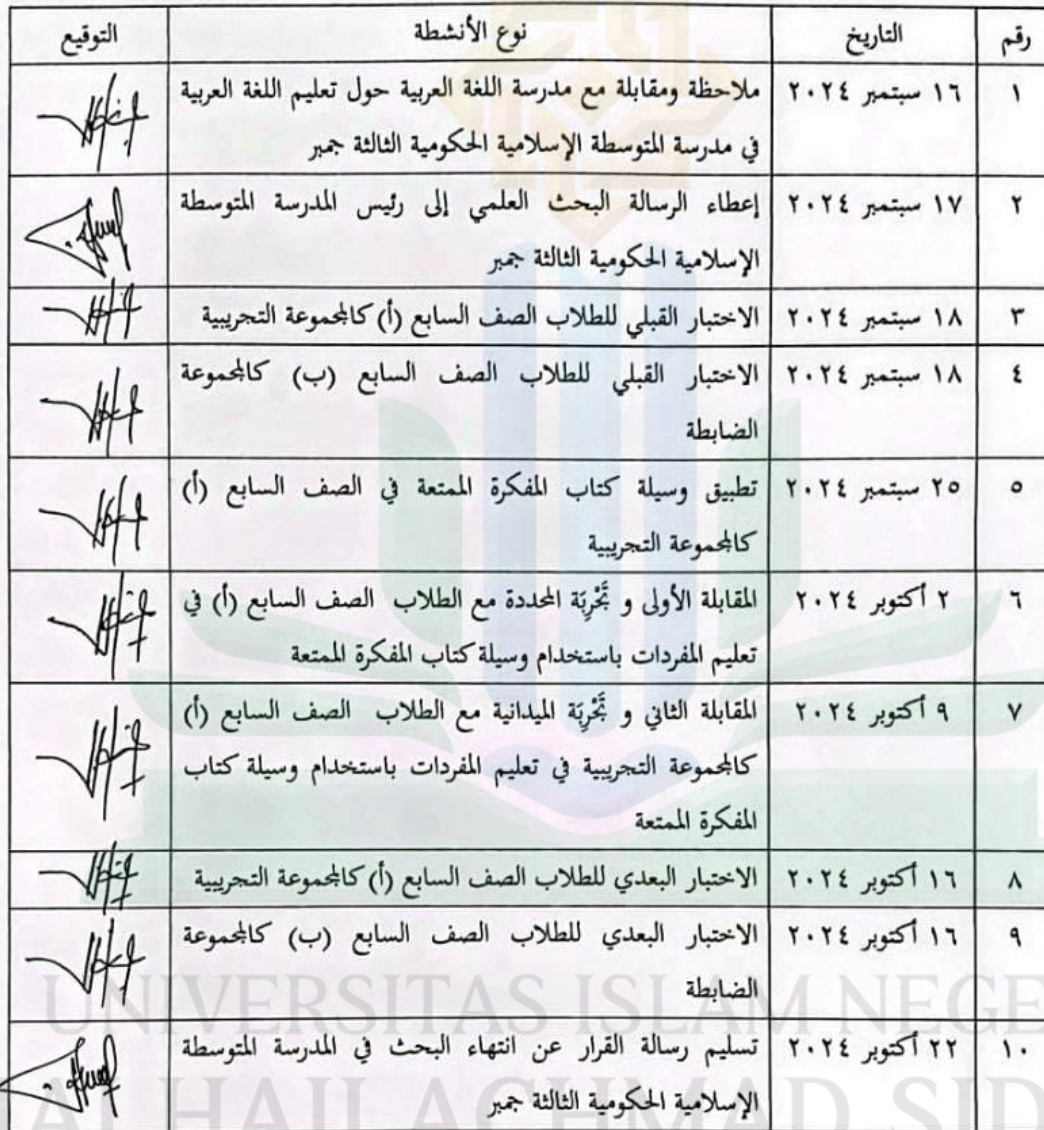 رقم التاريخ نوع الأنشطة التوقيع
١ ١٦ سبتمبر ٢٠٢٤ ملاحظة ومقابلة مع مدرسة اللغة العربية حول تعليم اللغة العربية
في مدرسة المتوسطة الإسلامية الحكومية الثالثة جمبر
٢ ١٧ سبتمبر ٢٠٢٤ إعطاء الرسالة البحث العلمي إلى رئيس المدرسة المتوسطة
الإسلامية الحكومية الثالثة جمبر
٣ ١٨ سبتمبر ٢٠٢٤ الاختبار القبلي للطلاب الصف السابع (أ) كالمجموعة التجريبية
٤ ١٨ سبتمبر ٢٠٢٤ الاختبار القبلي للطلاب الصف السابع (ب) كالمجموعة
الضابطة
٥ ٢٥ سبتمبر ٢٠٢٤ تطبيق وسيلة كتاب المفكرة الممتعة في الصف السابع (أ)
كالمجموعة التجريبية
٦ ٢ أكتوبر ٢٠٢٤ المقابلة الأولى و تَّجْرِبَة المحددة مع الطلاب الصف السابع (أ) في
تعليم المفردات باستخدام وسيلة كتاب المفكرة الممتعة
٧ ٩ أكتوبر ٢٠٢٤ المقابلة الثاني و تَّجْرِبَة الميدانية مع الطلاب الصف السابع (أ)
كالمجموعة التجريبية في تعليم المفردات باستخدام وسيلة كتاب
المفكرة الممتعة
٨ ١٦ أكتوبر ٢٠٢٤ الاختبار البعدي للطلاب الصف السابع (أ) كالمجموعة التجريبية
٩ ١٦ أكتوبر ٢٠٢٤ الاختبار البعدي للطلاب الصف السابع (ب) كالمجموعة
الضابطة
UNIVERSITAS ISLAM NEGE
١٠ ٢٢ أكتوبر ٢٠٢٤ تسليم رسالة القرار عن انتهاء البحث في المدرسة المتوسطة
الإسلامية الحكومية الثالثة جمبر
HAJI ACHMAD SID